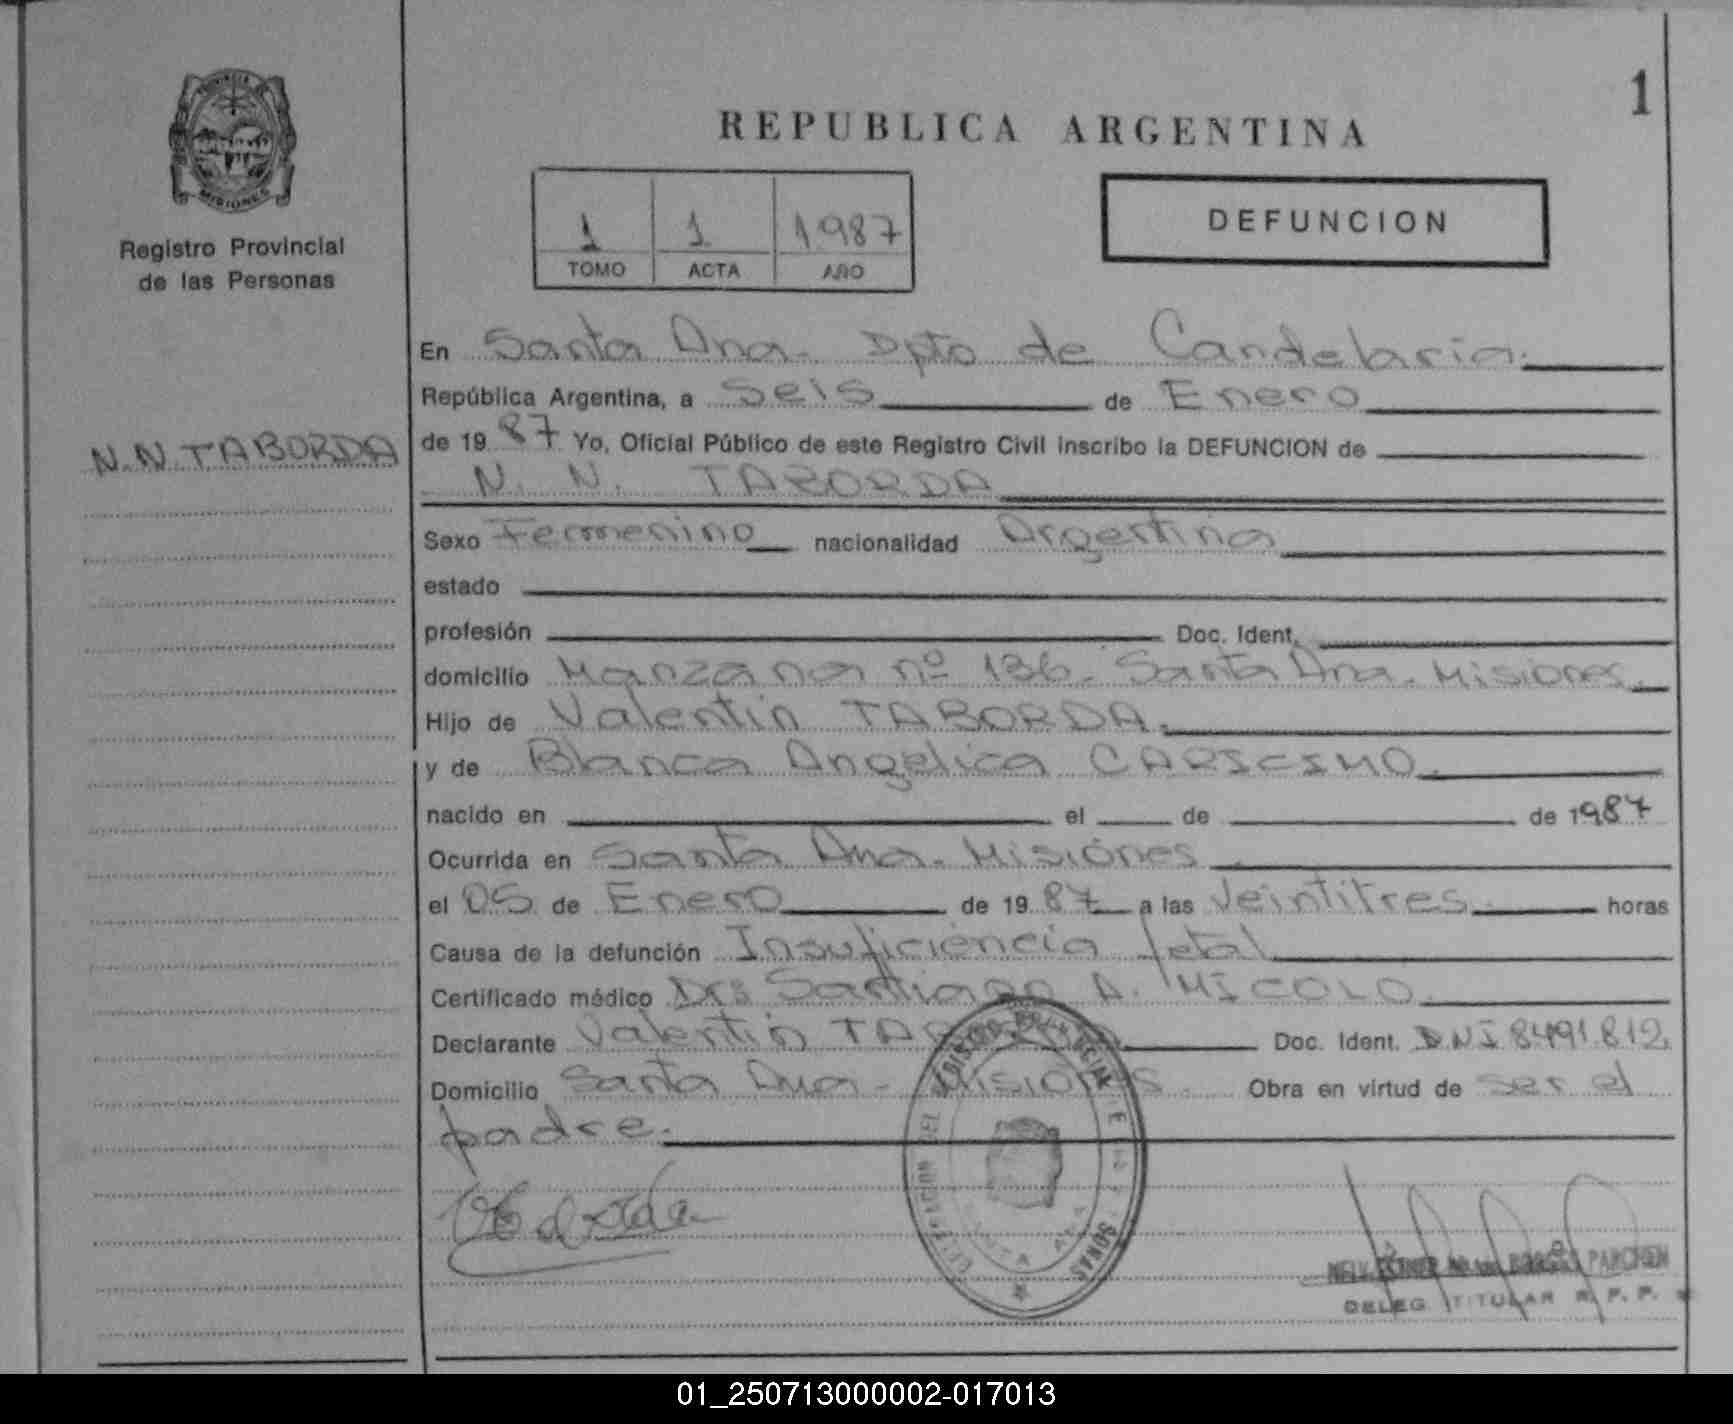 1
REPUBLICA ARGENTINA
PROVINCIA
MISIONES
Registro Provincial
de las Personas
1 1 1987
TOMO ACTA AÑO
DEFUNCION
En Santa Ana. Dpto de Candelaria.
República Argentina, a Seis de Enero
N.N. TABORDA
de 1987 Yo, Oficial Público de este Registro Civil inscribo la DEFUNCION de
N. N. TABORDA
Sexo Femenino nacionalidad Argentina
estado
profesión Doc. Ident.
domicilio Manzana nº 136. Santa Ana. Misiones.
Hijo de Valentin TABORDA.
y de Blanca Angelica CARISIMO.
nacido en el de de 1987
Ocurrida en Santa Ana. Misiones
el 05 de Enero de 1987 a las Veintitres. horas
Causa de la defunción Insuficiencia fetal
Certificado médico Dr. Santiago A. MICOLO.
Declarante Valentin TABORDA Doc. Ident. DNI 8491.812.
Domicilio Santa Ana - Misiones. Obra en virtud de ser el
padre.
SANTA ANA
DELEG. TITULAR R. P. P.
01_250713000002-017013